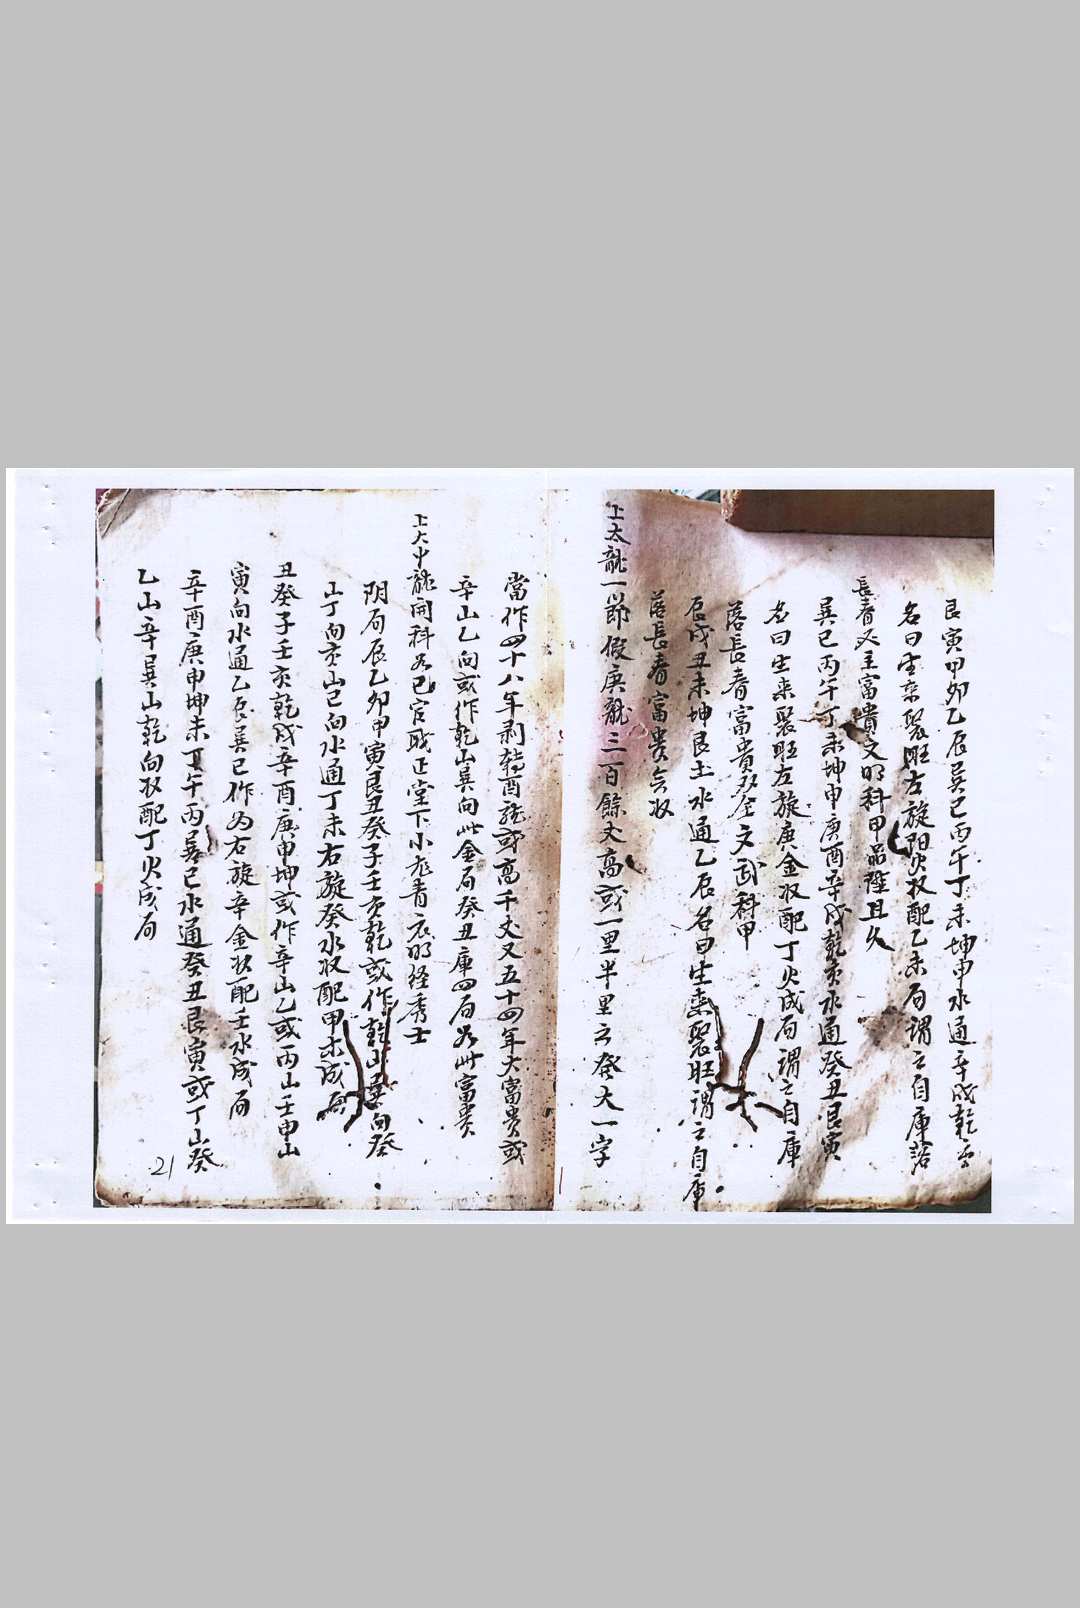 艮寅甲卯乙辰巽巳丙午丁未坤申水通辛戌乾亥
名曰生来聚旺左旋阳火收配乙未局谓之自庫諾
長春又主富貴文明科甲品陞且久
巽巳丙午丁未坤申庚酉辛戌乾亥水通癸丑艮寅
名曰生来聚旺左旋庚金收配丁火成局谓之自庫
落長春富貴双全文武科甲
辰戌丑未坤艮土水通乙辰名曰生来聚旺谓之自庫
落長春富貴
上太龍一節假庚龍三百餘丈高或一里半里之發大一字
當作四十八年剥轉酉龍或高千丈又五十四年大富貴或
辛山乙向或作乾山巽向此金局癸丑庫四局為此富贵
上大中龍開科为己官职正堂下小
阴局辰乙卯甲寅艮丑癸子壬亥乾或作乾山巽向癸
山丁向亥山巳向水通丁未右旋癸水收配甲木成局
丑癸子壬亥乾戌辛酉庚申坤或作辛山乙或丙山壬甲山
寅向水通乙辰巽巳作为右旋辛金收配壬水成局
辛酉庚申坤未丁午丙巽巳水通癸丑艮寅或丁山癸
乙山辛巽山乾向收配丁火成局
21